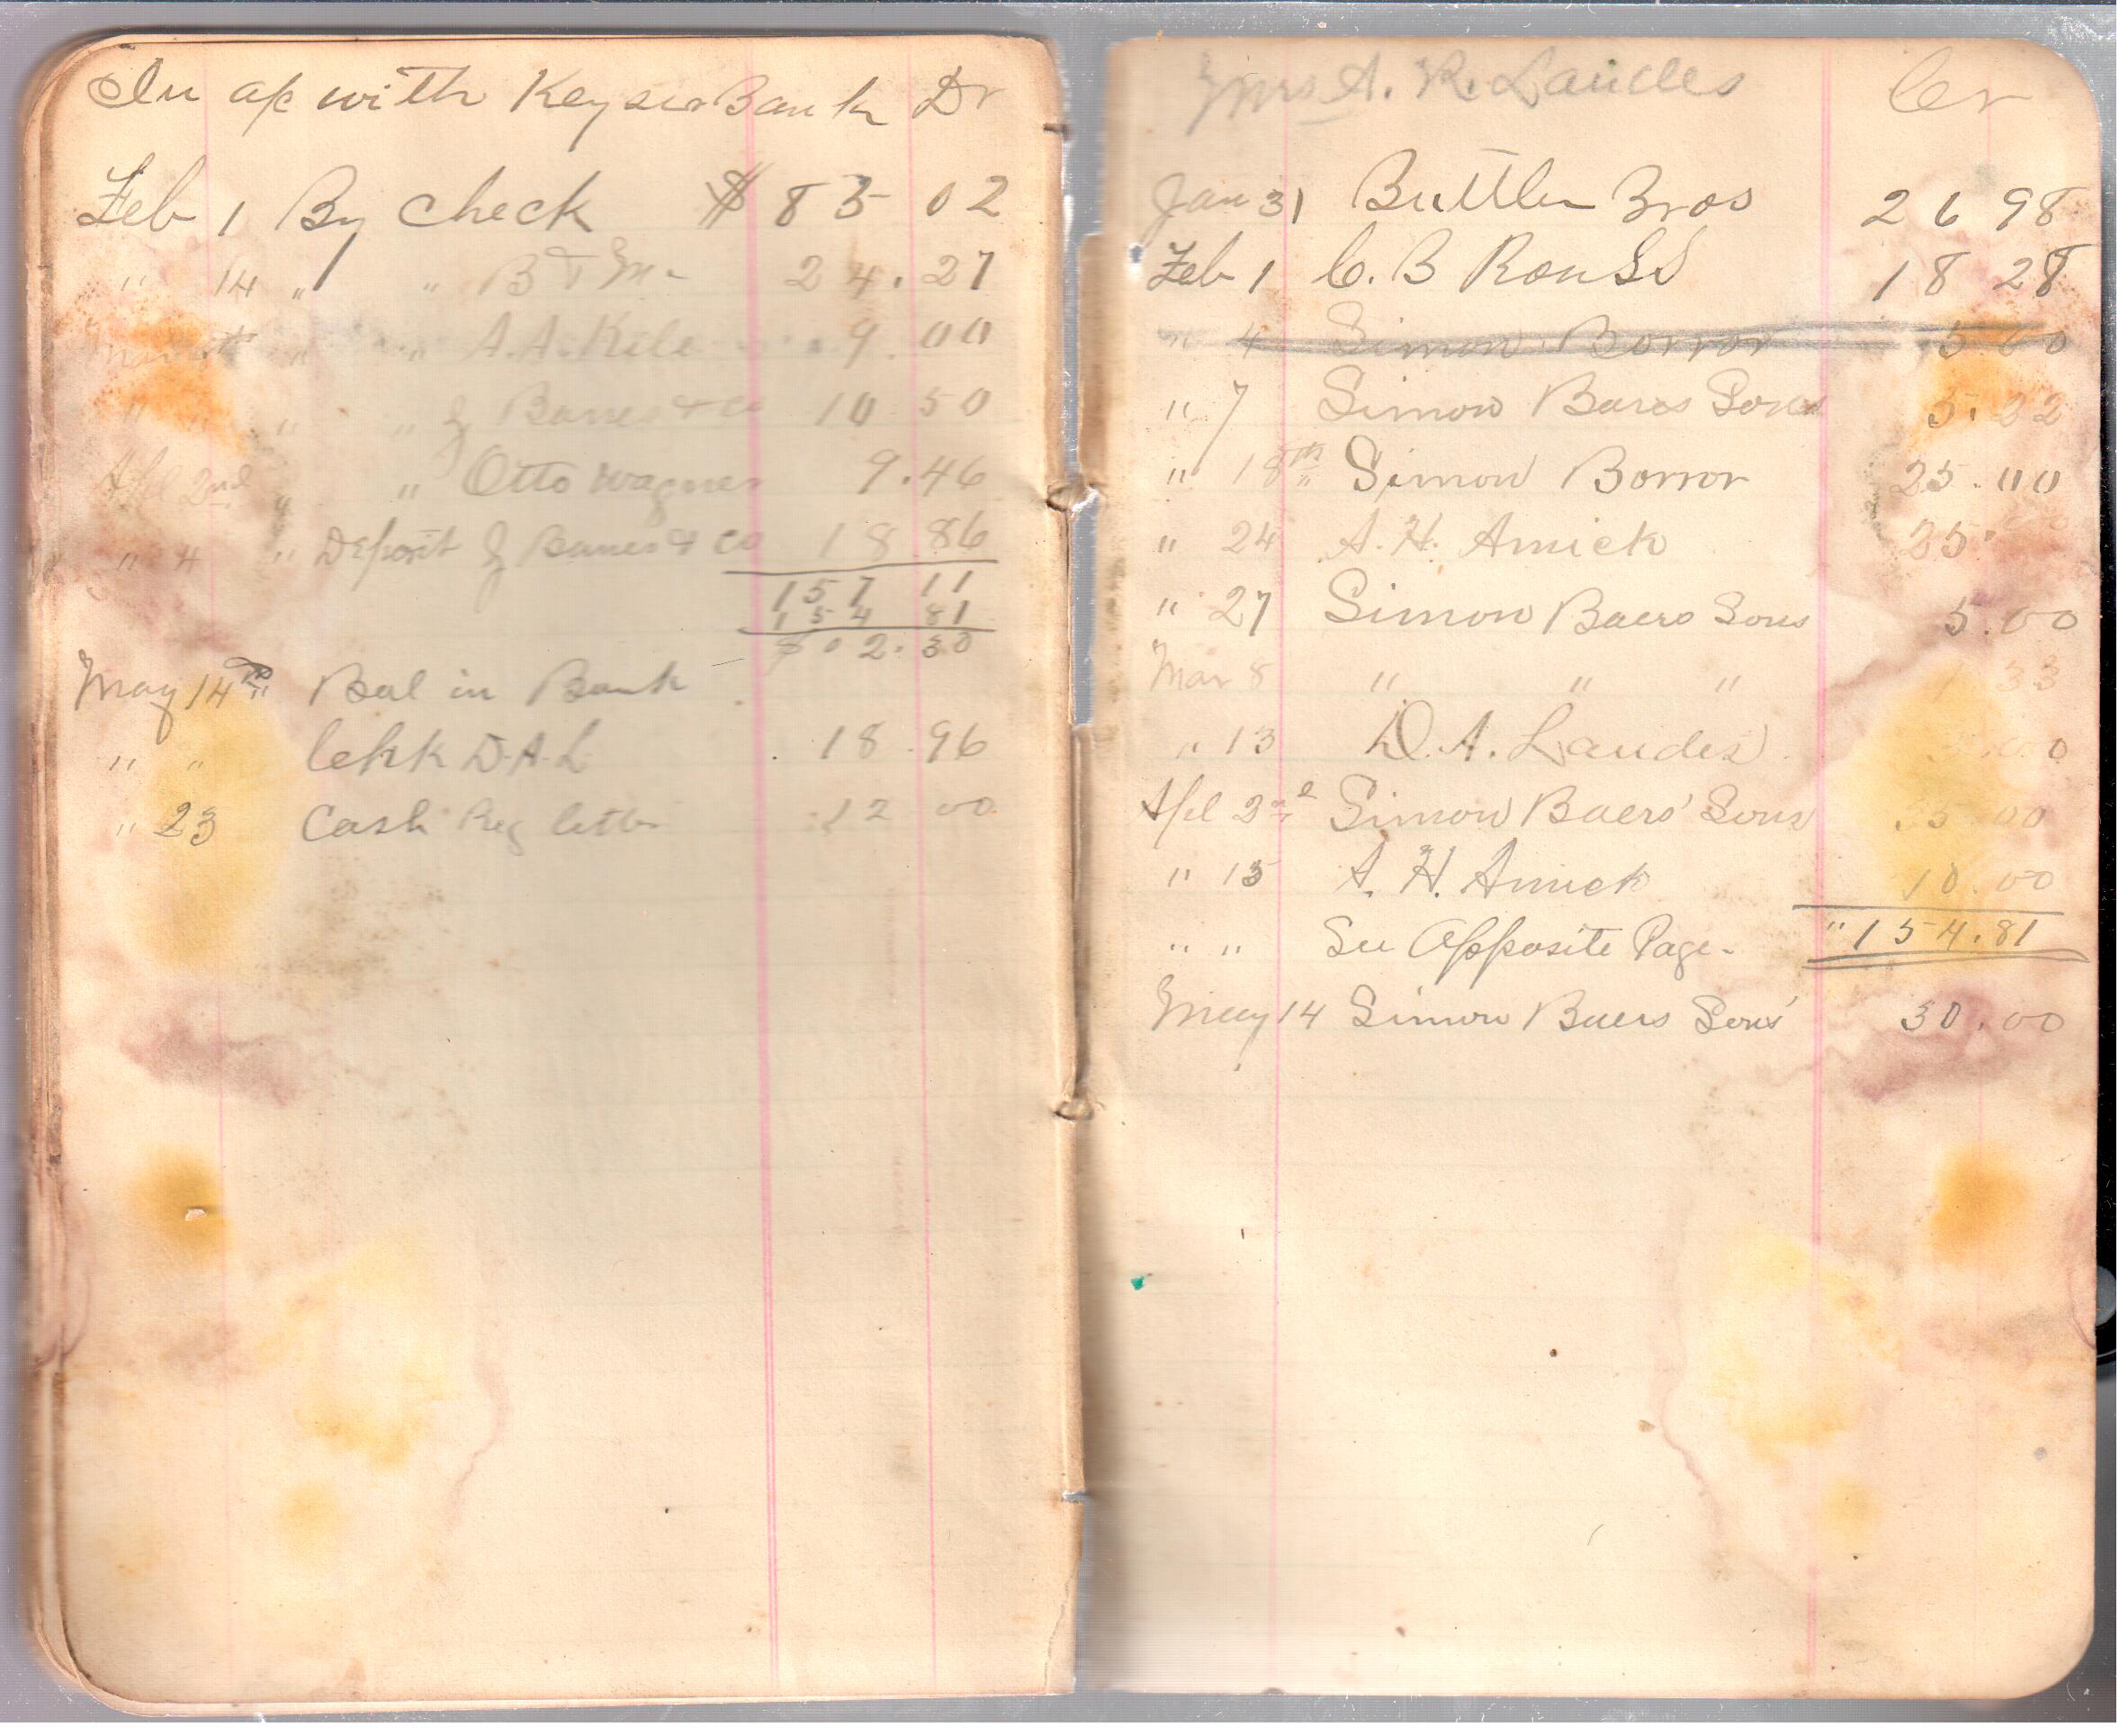 In a/c with Keyser Bank Dr
Feb 1 By check $ 85 02
" 14 " " B & M - 24. 27
" " A. A. Kile 9. 00
" " " " Barnes & Co 10 50
Apl 2nd " " Otto Wagner 9.46
" 4 " Deposit Barnes & Co 18 86
157 11
154 81
$ 0 2. 30
May 14th Bal in Bank
" " Chk D.A.L. 18.96
" 23 Cash Reg letter 12 00
Mrs A. R. Landes Cr
Jan 31 Buttler Bros 26 98
Feb 1 C. B Rouss 18 28
" 4 Simon Borror 5.00
" 7 Simon Baers Sons 5.22
" 18th Simon Borror 25.00
" 24 A. H. Amick 25.
" 27 Simon Baers Sons 5.00
Mar 8 " " " 1 33
" 13 D. A. Landes
Apl 2nd Simon Baers' Sons 35 00
" 15 A. H. Amick 10.00
" " See Opposite Page - " 154.81
May 14 Simon Baers Sons' 30.00